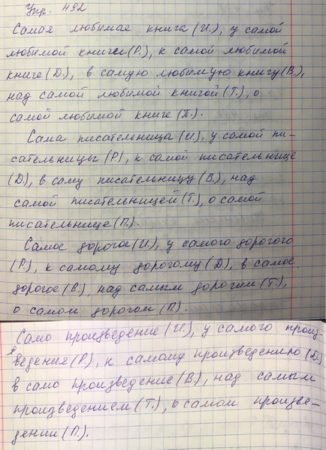 Упр. 492
Самая любимая книга (И.), у самой
любимой книги (Р.), к самой любимой
книге (Д.), в самую любимую книгу (В.),
над самой любимой книгой (Т.), о
самой любимой книге (П.).
Сама писательница (И.), у самой пи-
сательницы (Р.), к самой писательнице
(Д.), в саму писательницу (В.), над
самой писательницей (Т.), о самой
писательнице (П.).
Самое дорогое (И.), у самого дорогого
(Р.), к самому дорогому (Д.), в самое
дорогое (В.), над самым дорогим (Т.),
о самом дорогом (П.).
Само произведение (И.), у самого произ-
ведения (Р.), к самому произведению (Д.)
в само произведение (В.), над самым
произведением (Т.), о самом произве-
дении (П.).